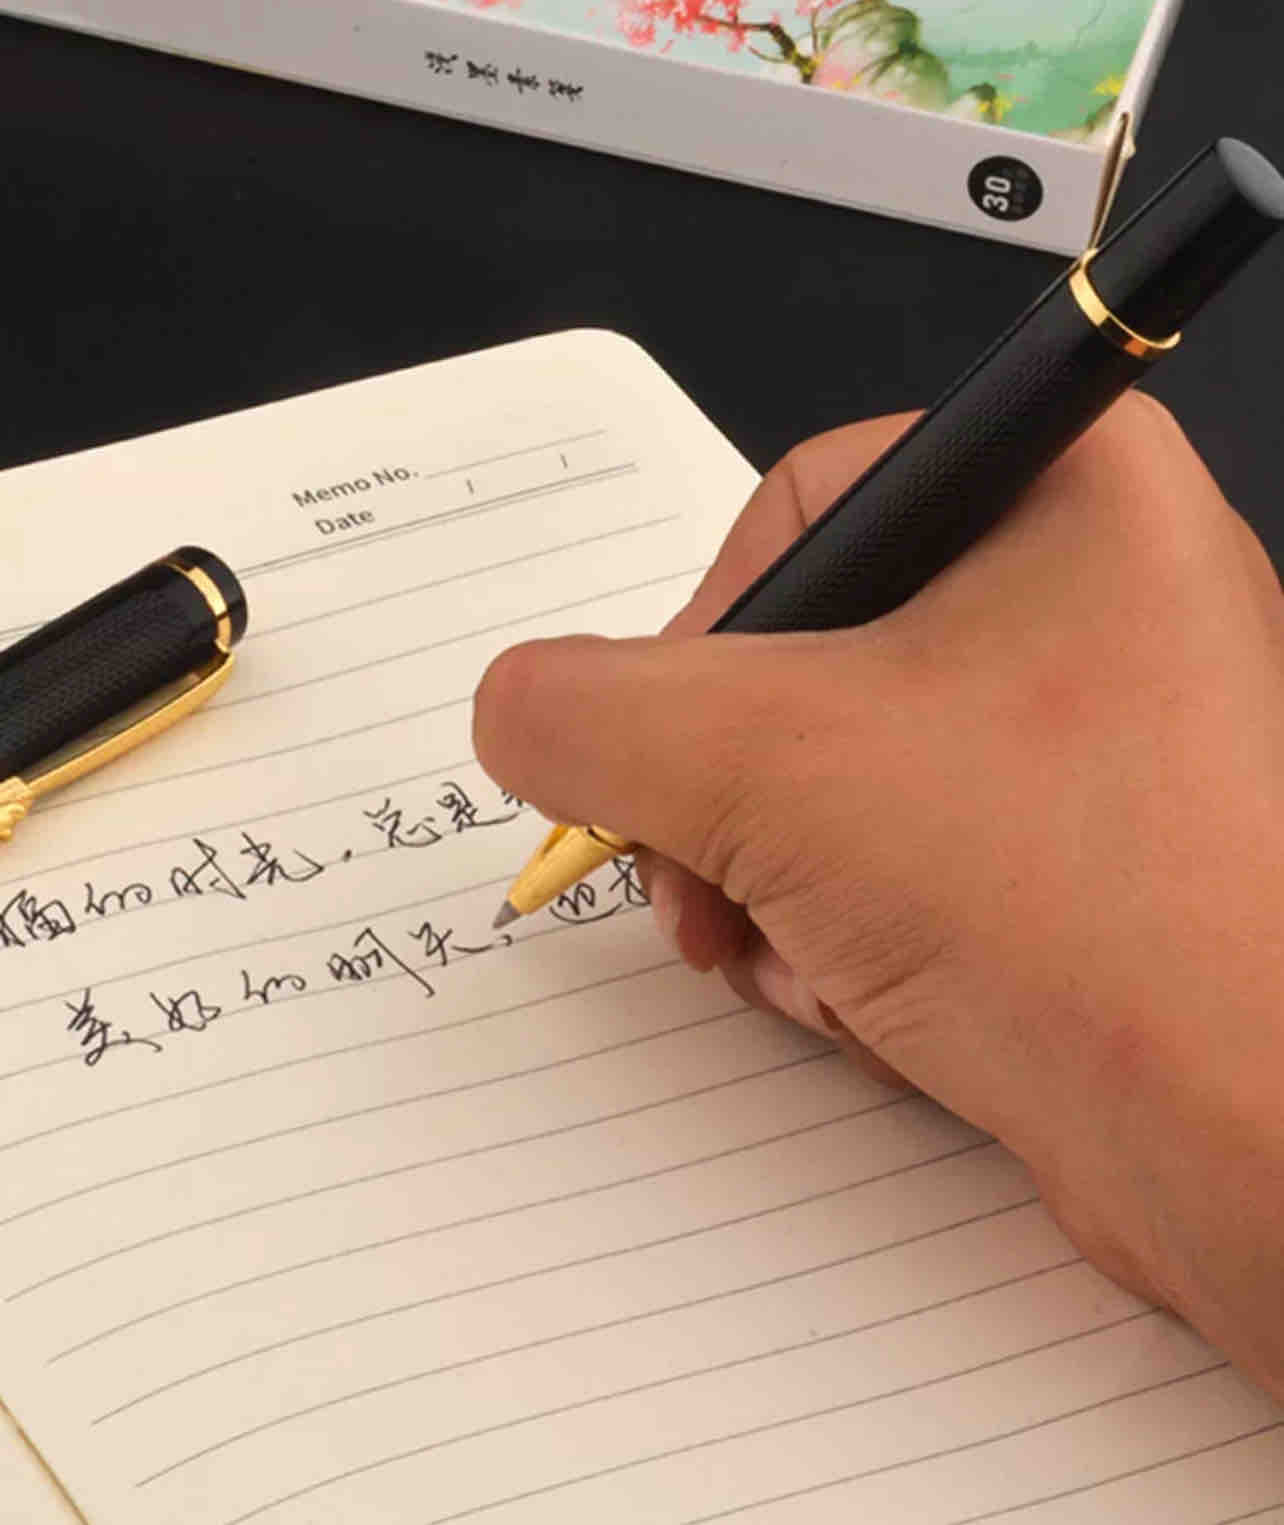 浅墨素笺
30
Memo No.
Date / /
的时光，总是
美好的明天，也